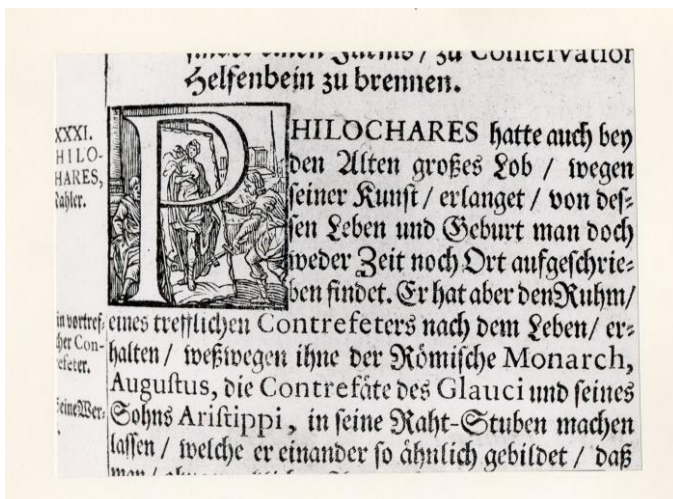 zu Conservation
Helfenbein zu brennen.
XXXI.
HILO-
HARES,
Mahler.
PHILOCHARES hatte auch bey
den Alten großes Lob / wegen
seiner Kunst / erlanget / von des-
sen Leben und Geburt man doch
weder Zeit noch Ort aufgeschrie-
ben findet. Er hat aber den Ruhm /
eines trefflichen Contrefeters nach dem Leben / er-
halten / weßwegen ihne der Römische Monarch,
Augustus, die Contrefäte des Glauci und seines
Sohns Aristippi, in seine Raht-Stuben machen
lassen / welche er einander so ähnlich gebildet / daß
in vortref-
cher Con-
refeter.
Seine Wer-